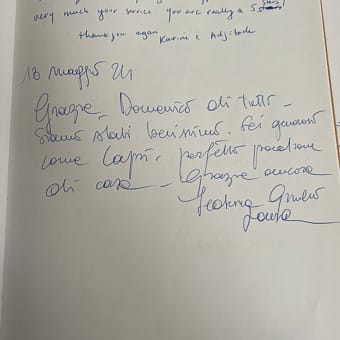 very much your service you are really a 5 stars
thank you again Karine e Adjibade
18 maggio 24
Grazie Domenico di tutto -
Siamo stati benissimo. Sei generoso
come Capri, perfetto padrone
di casa - Grazie ancora